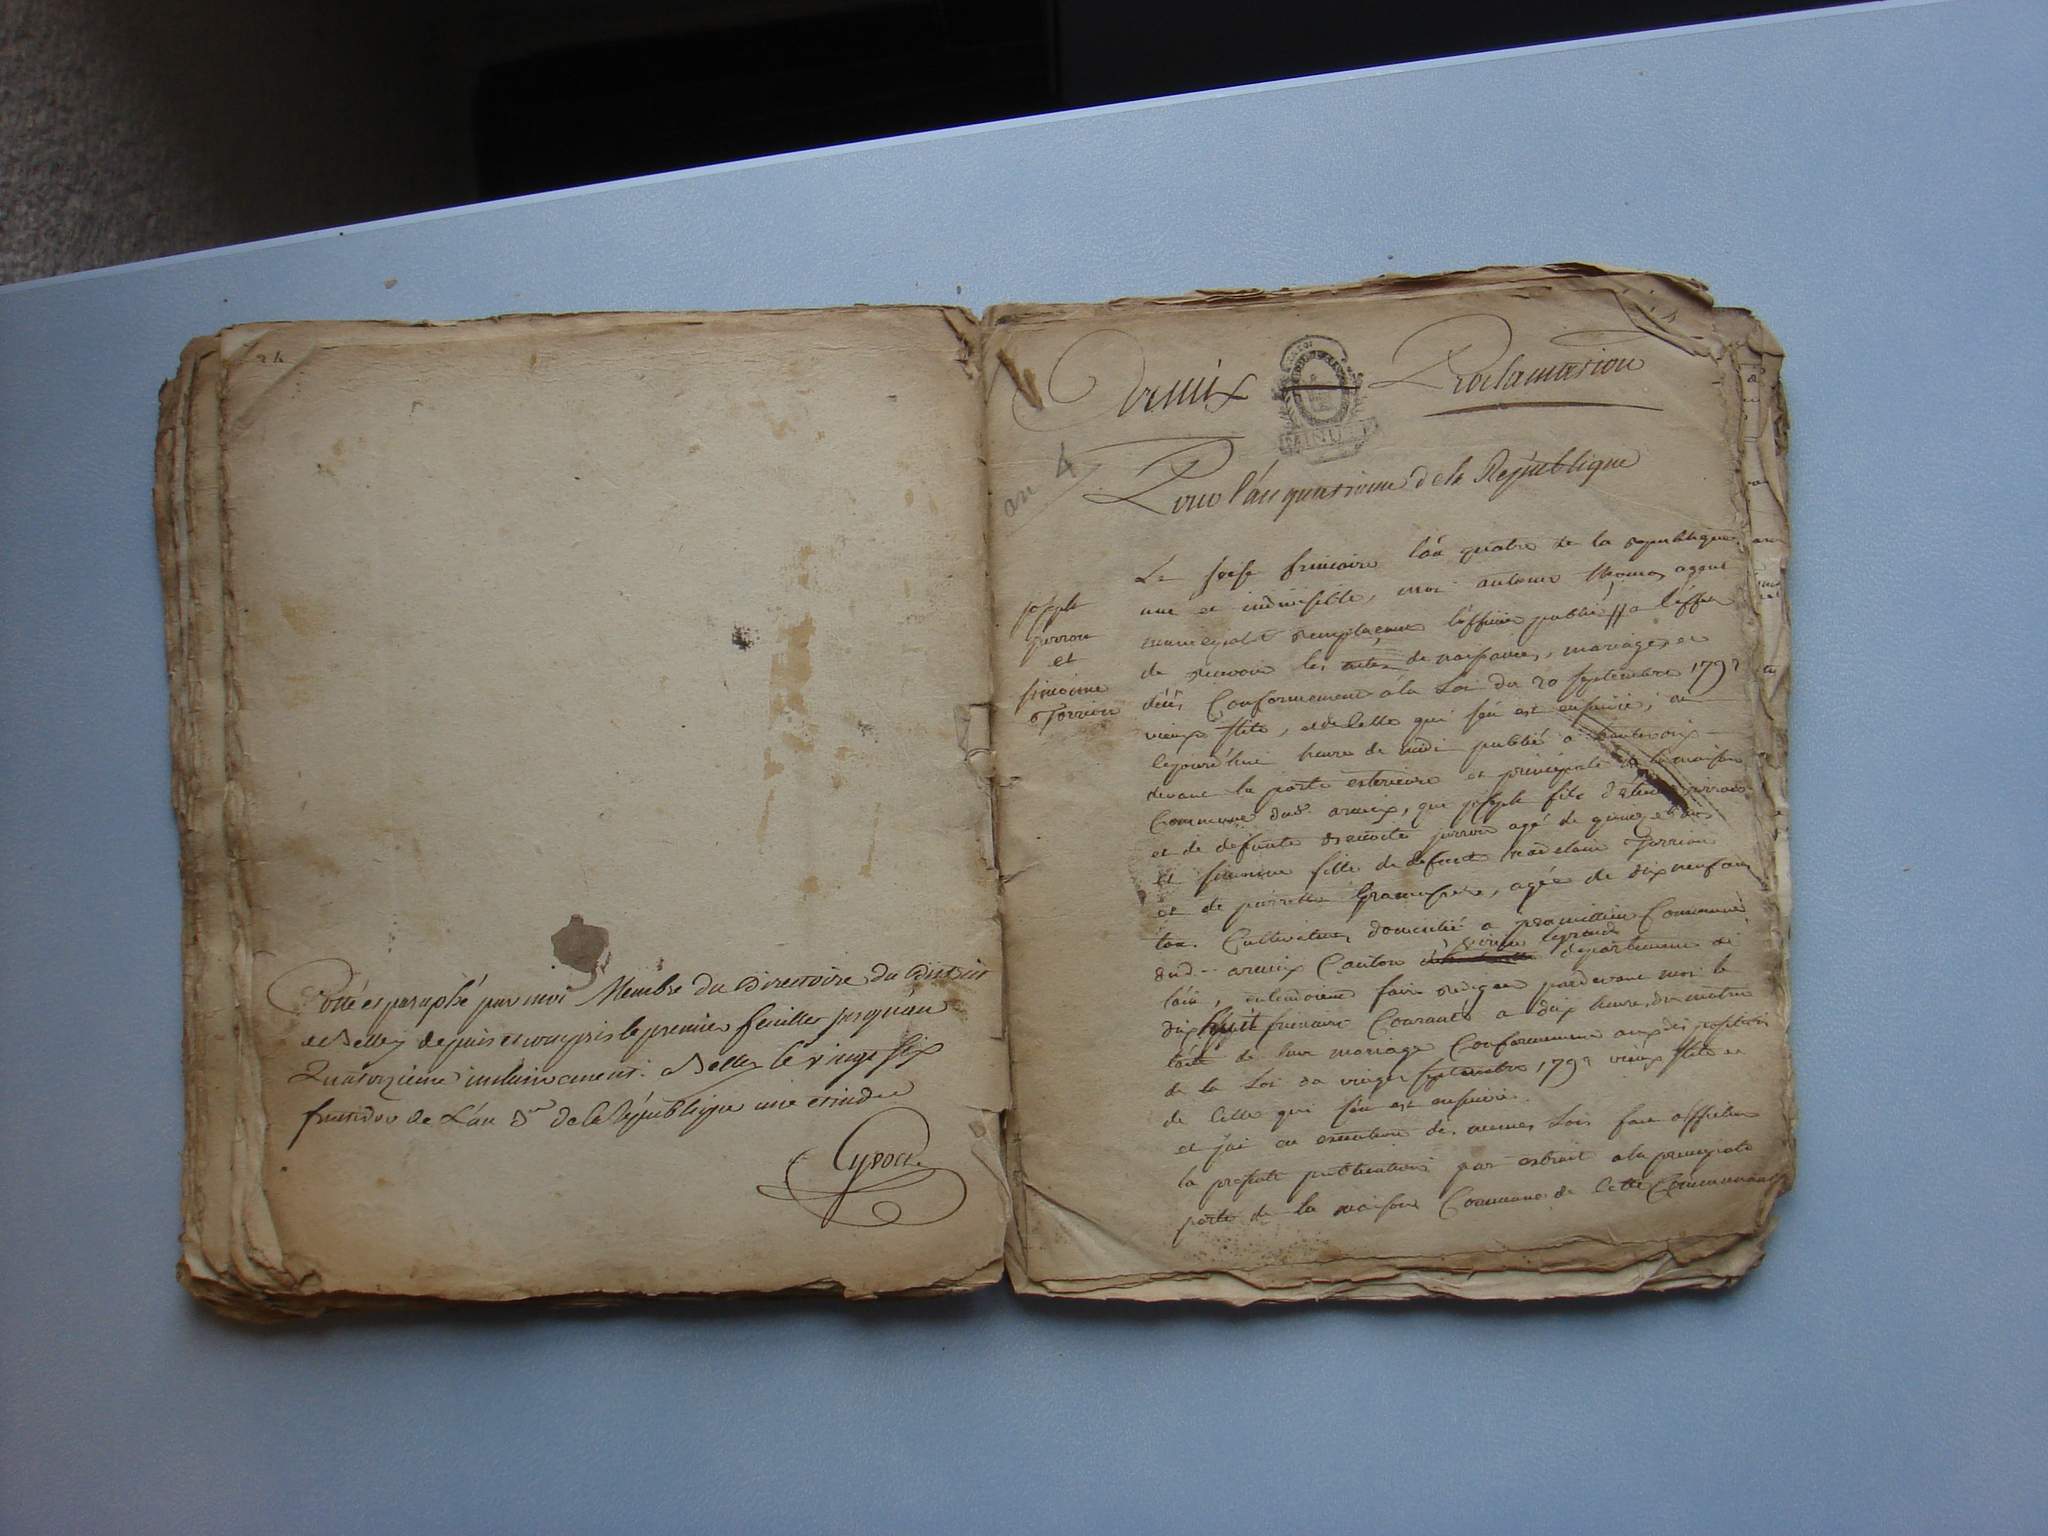 24
Cotté et paraphé par moi Membre du Directoire du District
de Belley depuis et compris le premier feuillet jusqu'au
Quatorzième inclusivement. à Belley le vingt six
fructidor de L'an 3e de la République une et indle
Cyvoct
armix Proclamation
MINUTE
an 4
Pour l'an quatrieme de la République
joseph
et
simoine
torrion
Le seise frimaire l'an quatre de la republique
une et indivisible, moi antoine thomas agent
municipal remplacent l'officier public a l'effet
de recevoir les actes de naissances, mariages et
décès Conformement a la Loi du 20 septembre 1792
vieux stile, et de Celle qui s'en est ensuivie, ai
cejourd'hui heure de midi publié a hautevoix
devant la porte exterieure et principale de la maison
Commune dud. armix, que joseph fils d'
et de defunte agé de
et simoine fille de defunt torrion
et de pierrette agée de dix neuf ans
tou. Cultivateur domicilié a premillieu Commune
dud. armix Canton virieu legrand departement de
lain, entendoient faire rediger pardevant moi le
dix huit frimaire Courant a dix heure du matin
de leur mariage Conformement aux dispositions
de la Loi du vingt septembre 1792 vieux stile et
de Celle qui s'en est ensuivie.
et j'ai en execution des memes Lois fait afficher
la presente publication par extrait a la principale
porte de la maison Commune de Cette Commune